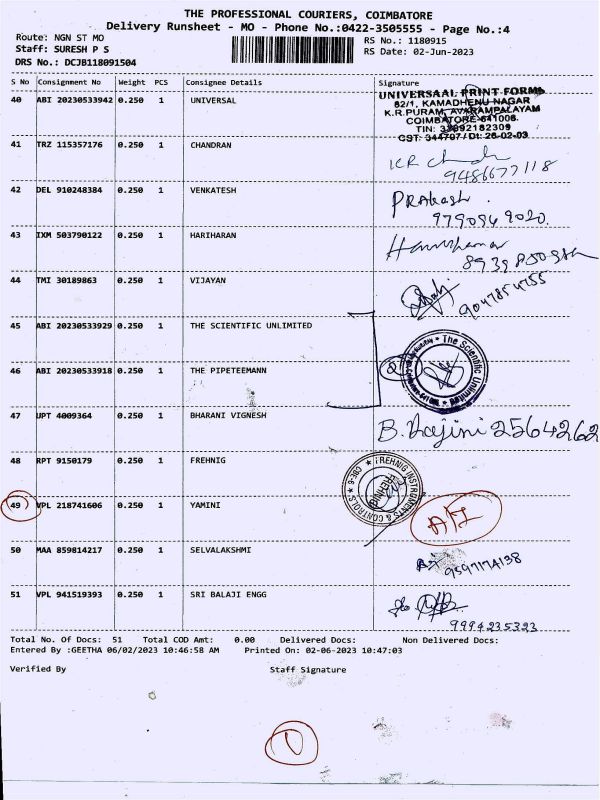 THE PROFESSIONAL COURIERS, COIMBATORE
Delivery Runsheet - MO - Phone No.:0422-3505555 - Page No.:4
Route: NGN ST MO
Staff: SURESH P S
DRS No.: DCJB118091504
RS No.: 1180915
RS Date: 02-Jun-2023
S No Consignment No Weight PCS Consignee Details Signature
40 ABI 20230533942 0.250 1 UNIVERSAL
UNIVERSAAL PRINT FORMS
82/1, KAMADHENU NAGAR
K.R.PURAM, AVARAMPALAYAM
COIMBATORE-641006.
TIN: 33092182309
CST: 344707/Dt: 26-02-03
41 TRZ 115357176 0.250 1 CHANDRAN
KR
9486677118
42 DEL 910248384 0.250 1 VENKATESH
PRAkash.
9790949020
43 IXM 503790122 0.250 1 HARIHARAN
44 TMI 30189863 0.250 1 VIJAYAN
9047854755
45 ABI 20230533929 0.250 1 THE SCIENTIFIC UNLIMITED
46 ABI 20230533918 0.250 1 THE PIPETEEMANN
2
The Scientific Unlimited
47 UPT 4009364 0.250 1 BHARANI VIGNESH
B. 2564262
48 RPT 9150179 0.250 1 FREHNIG
FREHNIG INSTRUMENTS & CONTROLS
CBE-6
FREHNIG
49 VPL 218741606 0.250 1 YAMINI
50 MAA 859814217 0.250 1 SELVALAKSHMI
51 VPL 941519393 0.250 1 SRI BALAJI ENGG
9994235323
Total No. Of Docs: 51 Total COD Amt: 0.00 Delivered Docs: Non Delivered Docs:
Entered By :GEETHA 06/02/2023 10:46:58 AM Printed On: 02-06-2023 10:47:03
Verified By Staff Signature